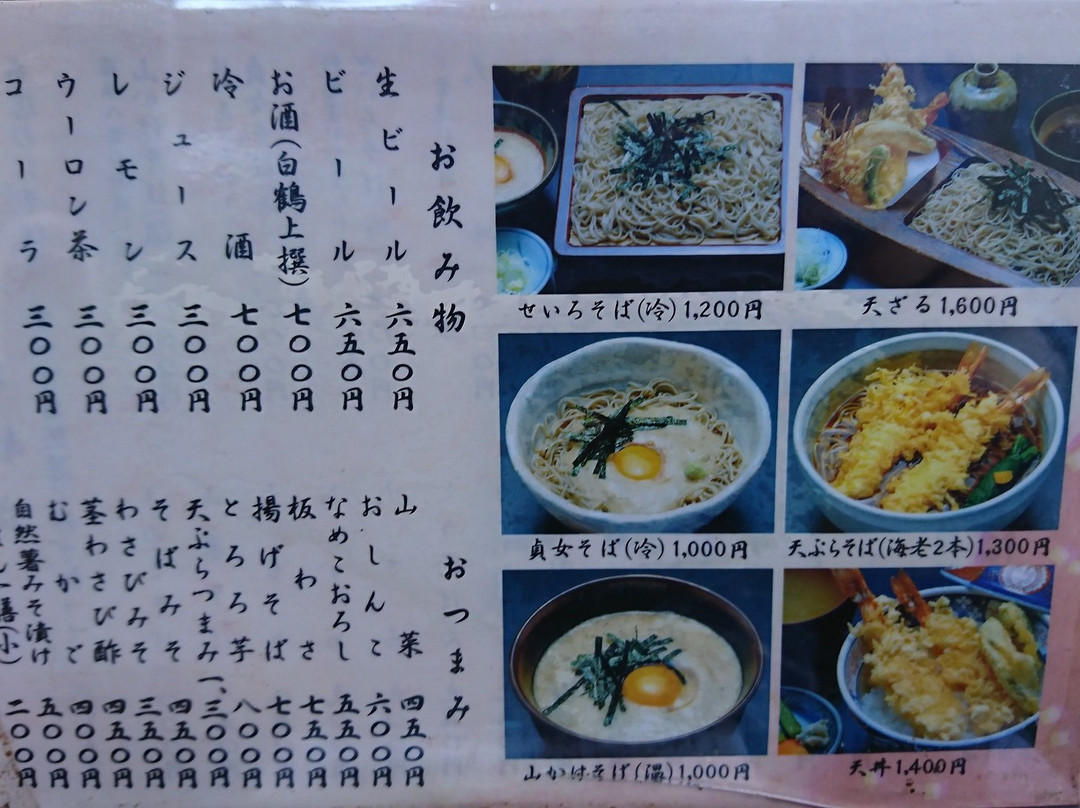 せいろそば(冷)1,200円
天ざる1,600円
貞女そば(冷)1,000円
天ぷらそば(海老2本)1,300円
山かけそば(温)1,000円
天丼1,400円
お飲み物
生ビール 六五〇円
ビール 六五〇円
お酒(白鶴上撰) 七〇〇円
冷酒 七〇〇円
ジュース 三〇〇円
レモン 三〇〇円
ウーロン茶 三〇〇円
コーラ 三〇〇円
おつまみ
山菜 四五〇円
おしんこ 六〇〇円
なめこおろし 五五〇円
板わさ 七五〇円
揚げそば 七〇〇円
とろろ芋 八〇〇円
天ぷらつまみ 一、三〇〇円
そばみそ 四五〇円
わさびみそ 三五〇円
茎わさび酢 四五〇円
むかご 四〇〇円
自然薯みそ漬け 五〇〇円
(小) 二〇〇円